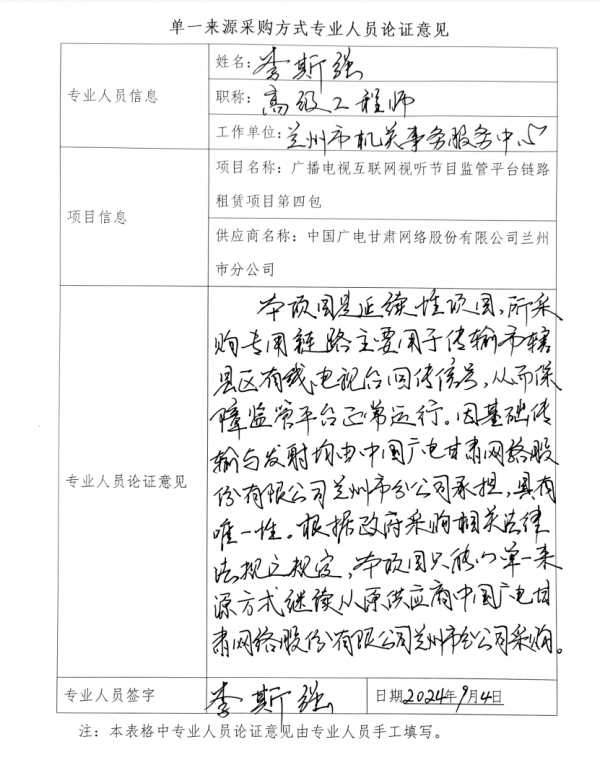 单一来源采购方式专业人员论证意见
专业人员信息
姓名：李斯强
职称：高级工程师
工作单位：兰州市机关事务服务中心
项目信息
项目名称：广播电视互联网视听节目监管平台链路
租赁项目第四包
供应商名称：中国广电甘肃网络股份有限公司兰州
市分公司
专业人员论证意见
本项目是延续性项目，所采
购专用链路主要用于传输市辖
县区有线电视台回传信号，从而保
障监管平台正常运行。因基础传
输与发射均由中国广电甘肃网络股
份有限公司兰州市分公司承担，具有
唯一性。根据政府采购相关法律
法规之规定，本项目只能以单一来
源方式继续从原供应商中国广电甘
肃网络股份有限公司兰州市分公司采购。
专业人员签字
李斯强
日期2024年9月4日
注：本表格中专业人员论证意见由专业人员手工填写。